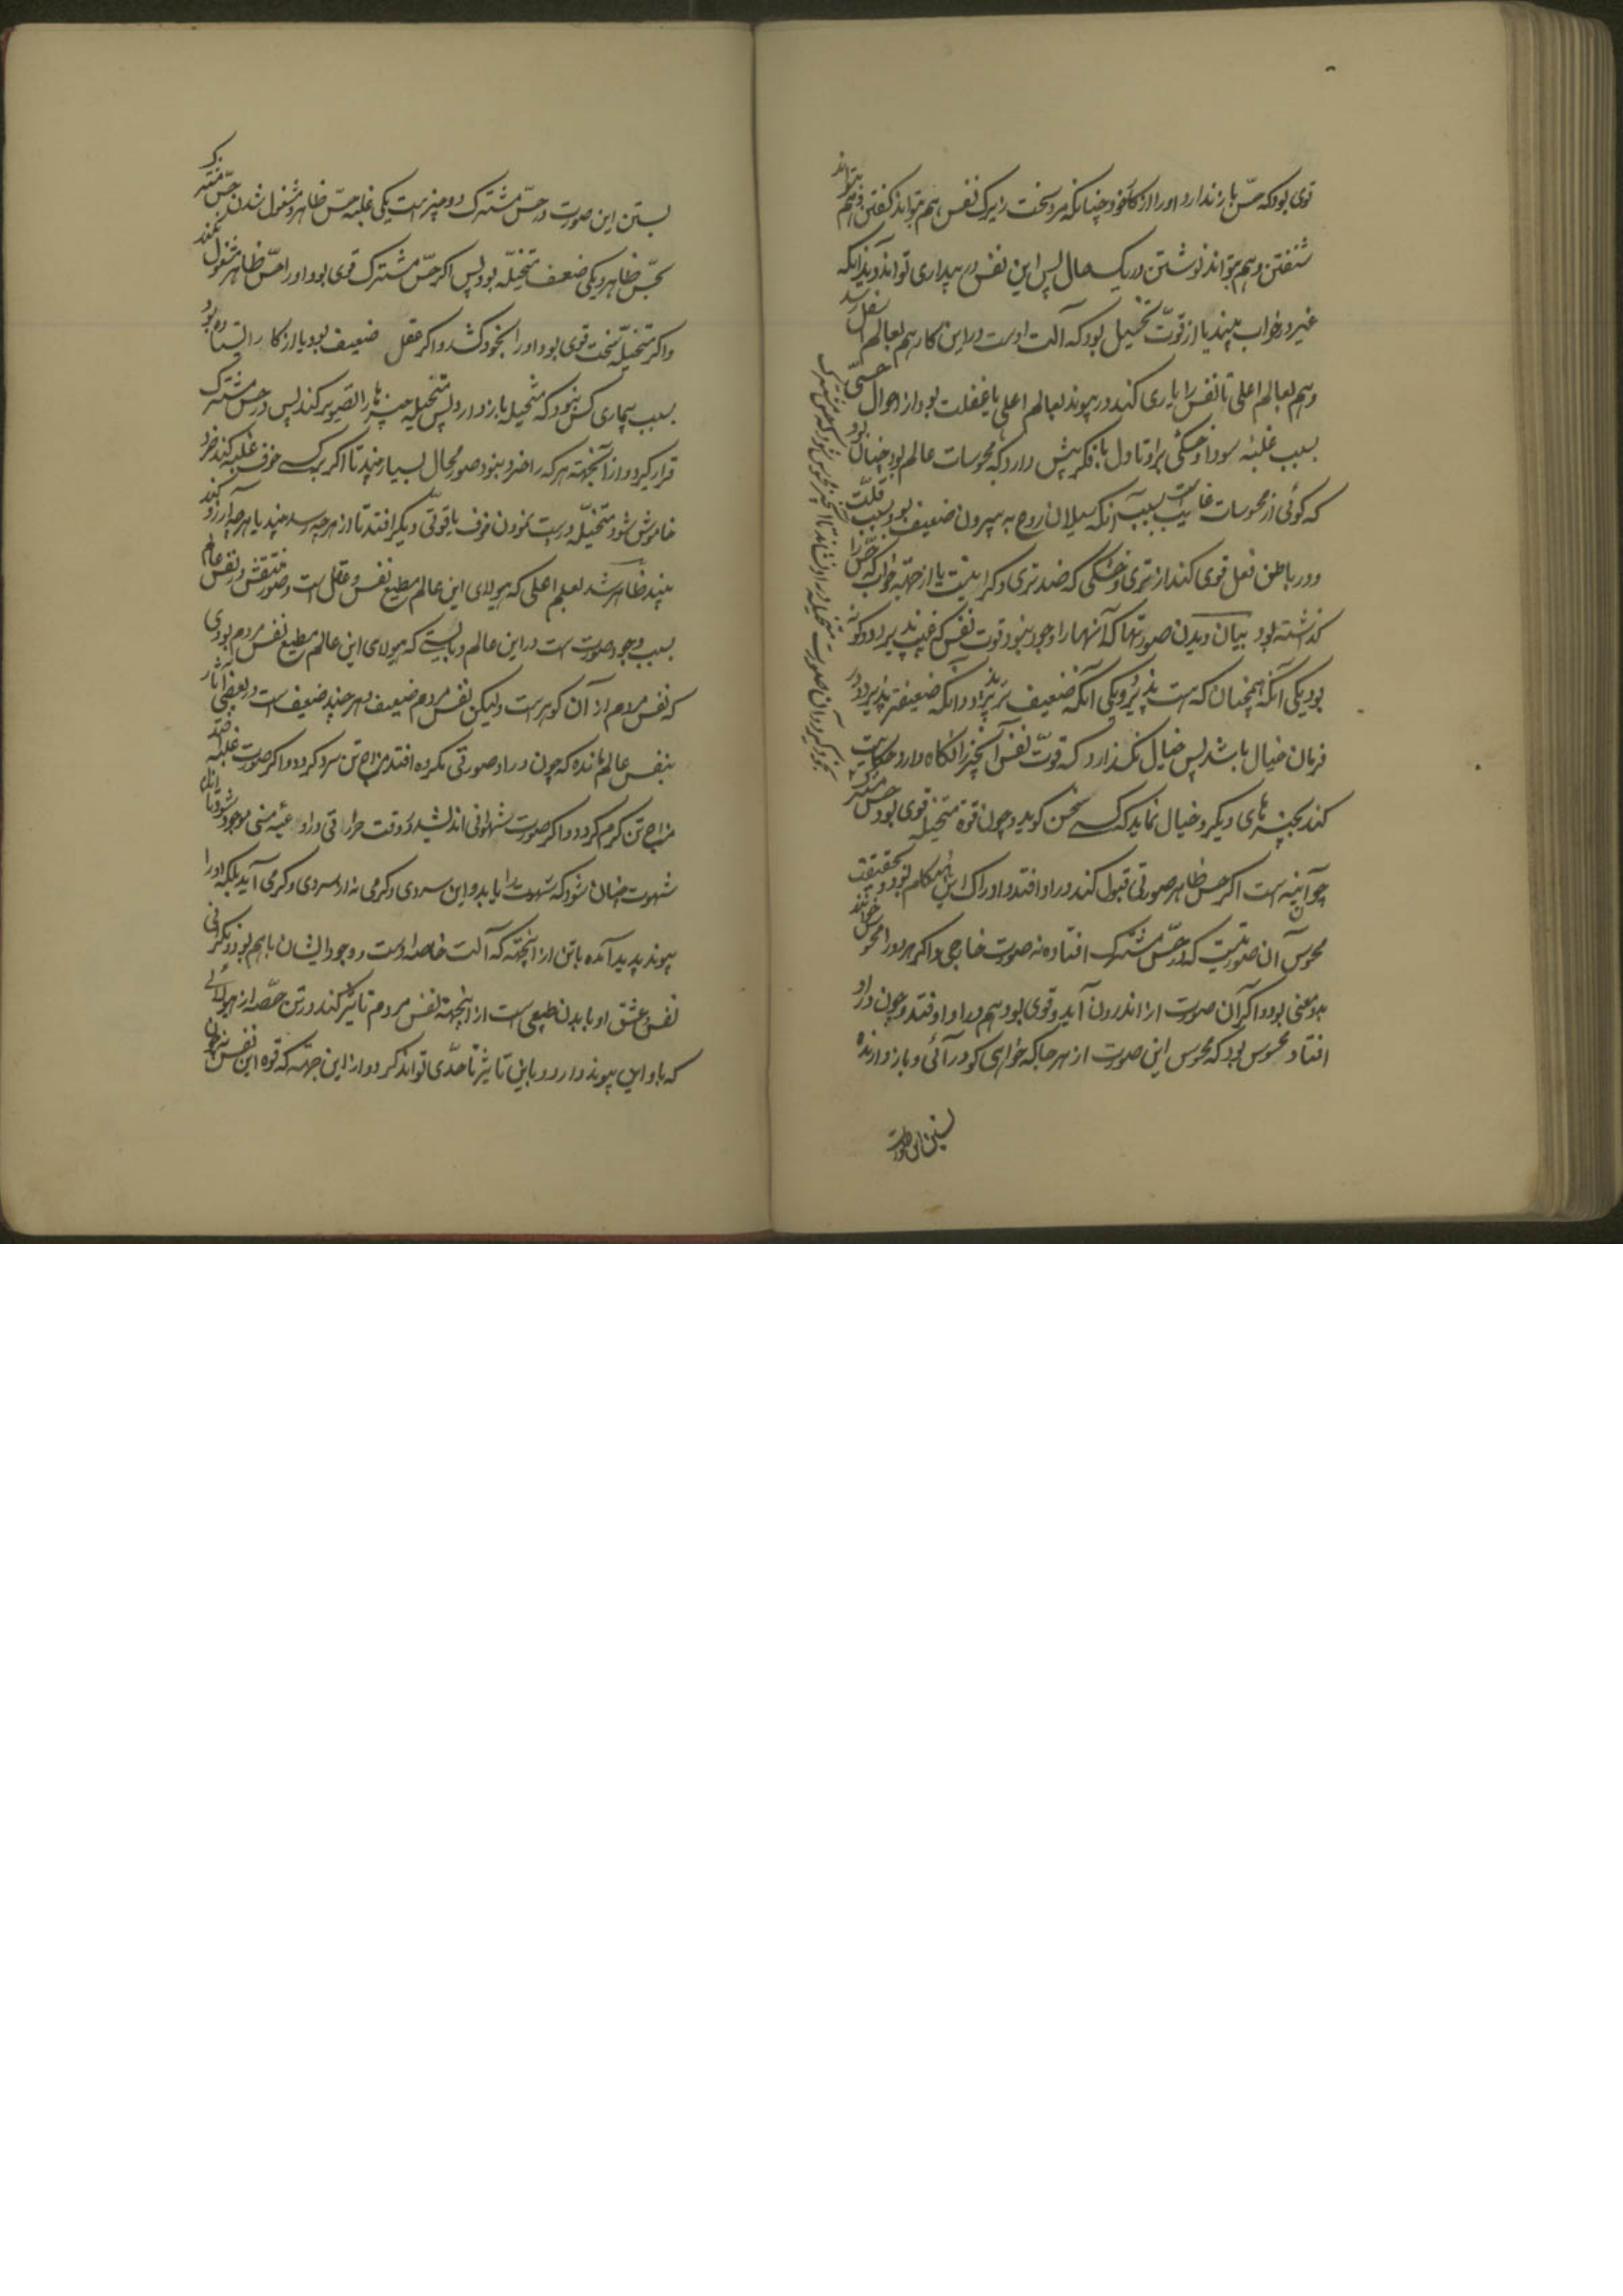 قوی بود که حس باز ندارد او را از کار خود چنانکه مرد سخت زیرک نفس هم تواند گفتن و هم تواند
شنفتن و هم تواند نوشتن در یک حال پس این نفس در بیداری تواند دید آنکه
غیر در خواب بیند یا از قوّت تخییل بود که آلت اوست در این کار هم بعالم سفل رسد
و هم بعالم اعلی تا نفس را یاری کند در پیوند بعالم اعلی یا غفلت بود از احوال حسی
بسبب غلبۀ سودا و خشکی براو تا دل با فکر پیش دارد که محسوسات عالم بود چنان بود
که گوئی از محسوسات غایب است بسبب آنکه سیلان روح به بیرون ضعیف بود بسبب قلّت
و در باطن فعل قوی کند از تری و خشکی که ضد تری و گرانیست یا از جهة خواب که حسّ را
گذشته بود بیان دیدن صورتها که آنها را وجود نبود قوت نفس که غیب پذیرد دو گونه
بود یکی آنکه همچنان که هست پذیرد و یکی آنکه ضعیف تر پذیرد و آنکه ضعیفتر پذیرد در
فرمان خیال باشد پس خیال نگذارد که قوّت نفس آنچیز را نگاه دارد حکایت
کند بچیزهای دیگر و خیال نماید که کسی سخن گوید و چون قوة متخیله قوی بود حس مشترک
چو آئینه است اگر حس ظاهر صورتی قبول کند در او افتد و ادراک این هنگام بود و بحقیقت
محسوس آن صورتیست که در حسّ مشترک افتاده نه صورت خارجی و اگر هر دو را محسوس خوانند
بدو معنی بود و اگر آن صورت از اندرون آید و قوی بود هم در او افتد و چون در او
افتاد محسوس بود که محسوس این صورت از هر جا که خواهی گو در آئی و باز دارنده
بستن این صورت
بستن این صورت در حسّ مشترک دو چیز است یکی غلبه حسّ ظاهر و مشغول شدن حسّ مشترک
بحسّ ظاهر و یکی ضعف متخیّله بود پس اگر حسّ مشترک قوی بود و او را حسّ ظاهر مشغول نکند
و اگر متخیله سخت قوی بود او را بخود کشد و اگر عقل ضعیف بود یا از کار ایستاده بود
بسبب بیماری کس نبود که متخیله باز دارد پس متخیله چیزها را تصویر کند پس در حس مشترک
قرار گیرد و از آنجهة هر که را خرد نبود صور محال بسیار بیند تا اگر بر کسی خوف غلبه کند خرد
خاموش شود متخیّله درست نمودن خوف یا قوتی دیگر افتد تا از هر چه ترسد بیند یا هر چه آرزو کند
بیند ظاهر شد بعلم اعلی که هیولای این عالم مطیع نفس و عقل است و صور منتقش در نفس عالم
بسبب وجود صورت است در این عالم و بایستی که هیولای این عالم مطیع نفس مردم بودی
که نفس مردم از آن گوهر است ولیکن نفس مردم ضعیف و هر چند ضعیف است در بعضی آثار
بنفس عالم مانده که چون در او صورتی مکروه افتد مزاج تن سرد گردد و اگر صورت غلبه افتد
مزاج تن گرم گردد و اگر صورت شهوانی اندیشد در وقت حرارتی در اوعیۀ منی موجود شود تا اندام
شهوت چنان شود که شهوت را باید و این سردی و گرمی نه از سردی و گرمی آید بلکه او را
پیوند پدید آمده با تن از آنجهة که آلت خاصه اوست و وجود ایشان باهم بود و نگرانی
نفس و عشق او با بدن طبیعی است از اینجهة نفس مردم تاثیر کند در تن حصّه از هیولائی
که با او این پیوند دارد و باین تاثیر تا حدّی تواند کرد و از این جهة که قوه این نفس